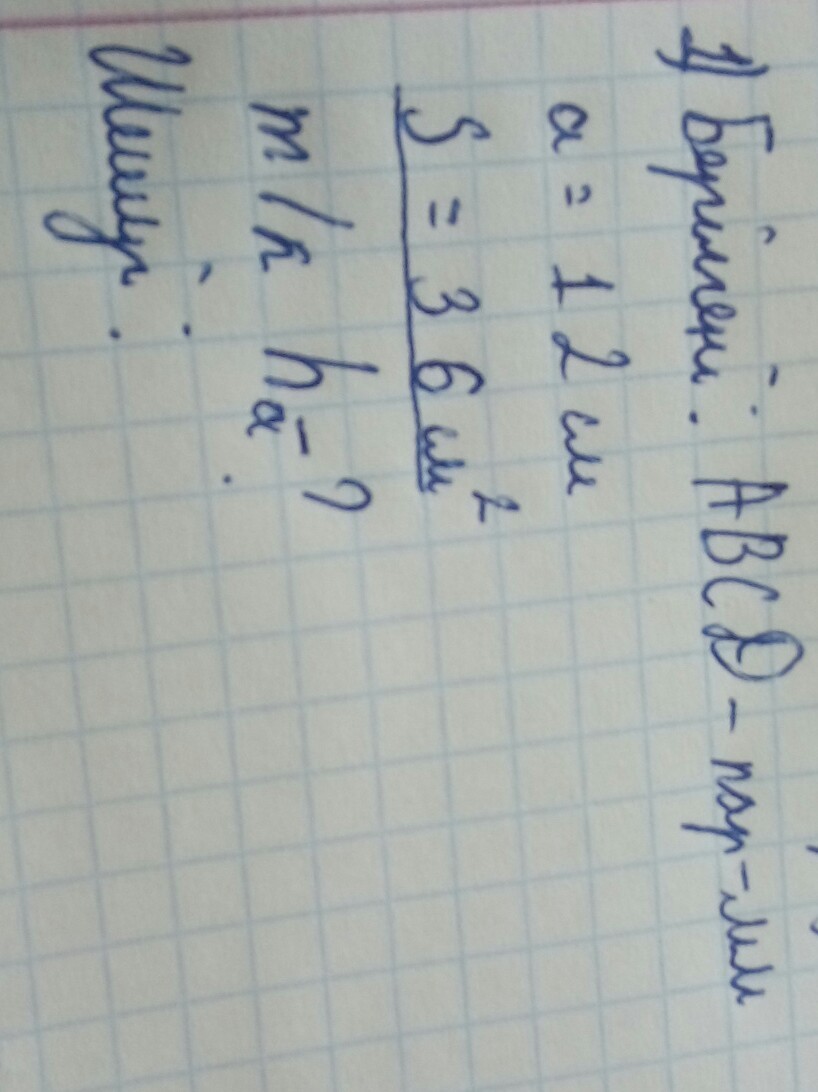 1) Берілгені: ABCD - пар-мм
a = 12 см
S = 36 см²
т/к ha - ?
Шешуі: